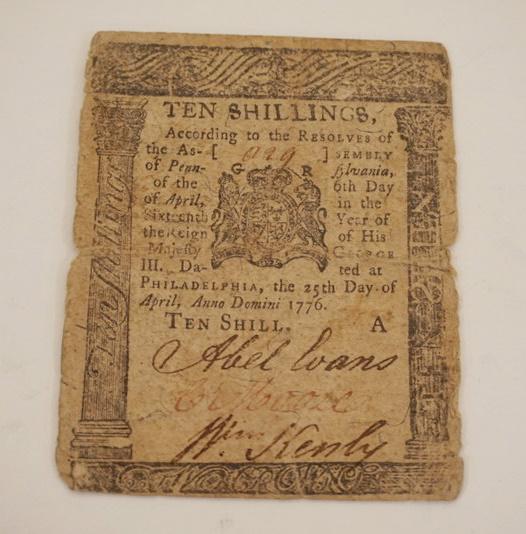 TEN SHILLINGS,
According to the RESOLVES of
the As- [ 929 ] SEMBLY
of Penn- G R sylvania,
of the 6th Day
of April, in the
Sixteenth Year of
the Reign of His
Majesty GEORGE
III. Da- ted at
PHILADELPHIA, the 25th Day of
April, Anno Domini 1776.
TEN SHILL. A
Abel Evans
Wm. Kenly
Ten Shillings